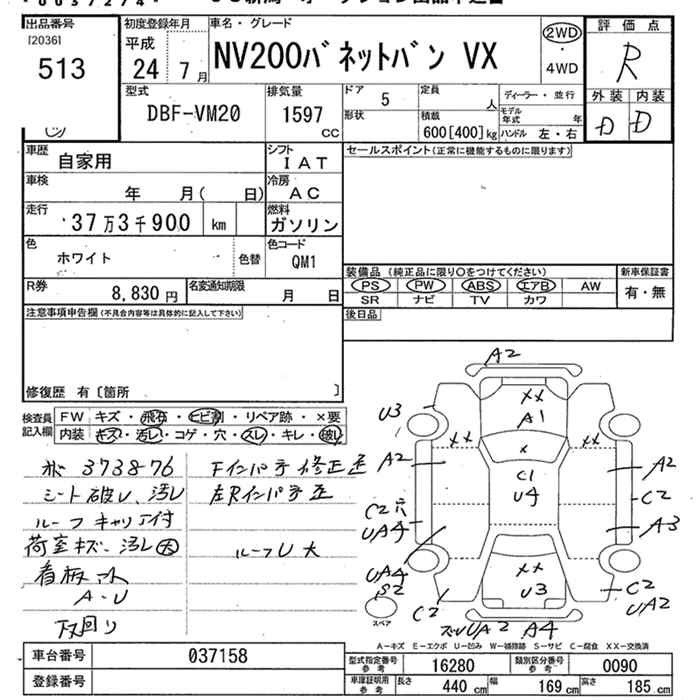 出品番号
[2036]
513
初度登録年月
平成
24 7月
車名・グレード
NV200バネットバン VX
2WD
・
4WD
評価点
R
外装 内装
D D
型式
DBF-VM20
排気量
1597
CC
ドア
5
形状
定員
人
積載
600[400]kg
ディーラー・並行
モデル年式
年
ハンドル 左・右
車歴
自家用
シフト
IAT
車検
年 月( 日)
冷房
AC
走行
37万3千900 km
燃料
ガソリン
色
ホワイト
色替
色コード
QM1
R券
8,830円
名変通知期限
月 日
セールスポイント(正常に機能するものに限ります)
装備品(純正品に限り○をつけてください)
PS PW ABS エアB AW
SR ナビ TV カワ
新車保証書
有・無
後日品
注意事項申告欄(不具合内容等は具体的に記入して下さい)
修復歴 有〔箇所 〕
検査員
記入欄
FW キズ・飛石・ヒビ割・リペア跡・×要
内装 キズ・汚レ・コゲ・穴・スレ・キレ・破レ
373876
シート破レ、汚レ
ルーフキャリア付
荷室キズ、汚レ大
看板マト
A-U
下回り
Fインパネ修正歪
左Rインパネ歪
ルーフU大
A2
XX
A1
U3
XX
XX
X
A2
A2
C1
U4
C2穴
UA4
C2
A3
UA4
S2
XX
U3
C2
C2
UA2
スペア
UA2 A4
A-キズ E-エクボ U-凹み W-補修跡 S-サビ C-腐食 XX-交換済
車台番号
037158
登録番号
型式指定番号
参考
16280
類別区分番号
参考
0090
車庫証明用
参考
長さ
440cm
幅
169cm
高さ
185cm